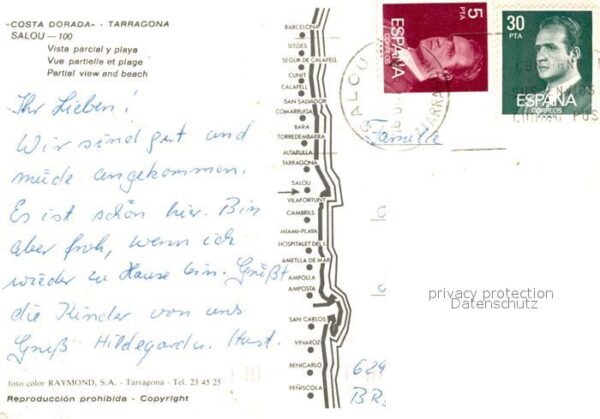 "COSTA DORADA" - TARRAGONA
SALOU — 100
Vista parcial y playa
Vue partielle et plage
Partial view and beach
Ihr Lieben!
Wir sind gut und
müde angekommen.
Es ist schön hier. Bin
aber froh, wenn ich
wieder zu Hause bin. Grüßt
die Kinder von uns
Gruß Hildegard u.
foto color RAYMOND, S.A. - Tarragona - Tel. 23 45 25
Reproducción prohibida - Copyright
BARCELONA
SITGES
SEGUR DE CALAFELL
CUNIT
CALAFELL
SAN SALVADOR
COMARRUGA
BARA
TORREDEMBARRA
ALTAFULLA
TARRAGONA
SALOU
VILAFORTUNY
CAMBRILS
MIAMI-PLAYA
HOSPITALET DEL I.
AMETLLA DE MAR
AMPOLLA
AMPOSTA
SAN CARLOS
VINAROZ
BENICARLO
PEÑISCOLA
5
PTA
ESPAÑA
CORREOS
30
PTA
ESPAÑA
CORREOS
SALOU
Familie
privacy protection
Datenschutz
629
BR